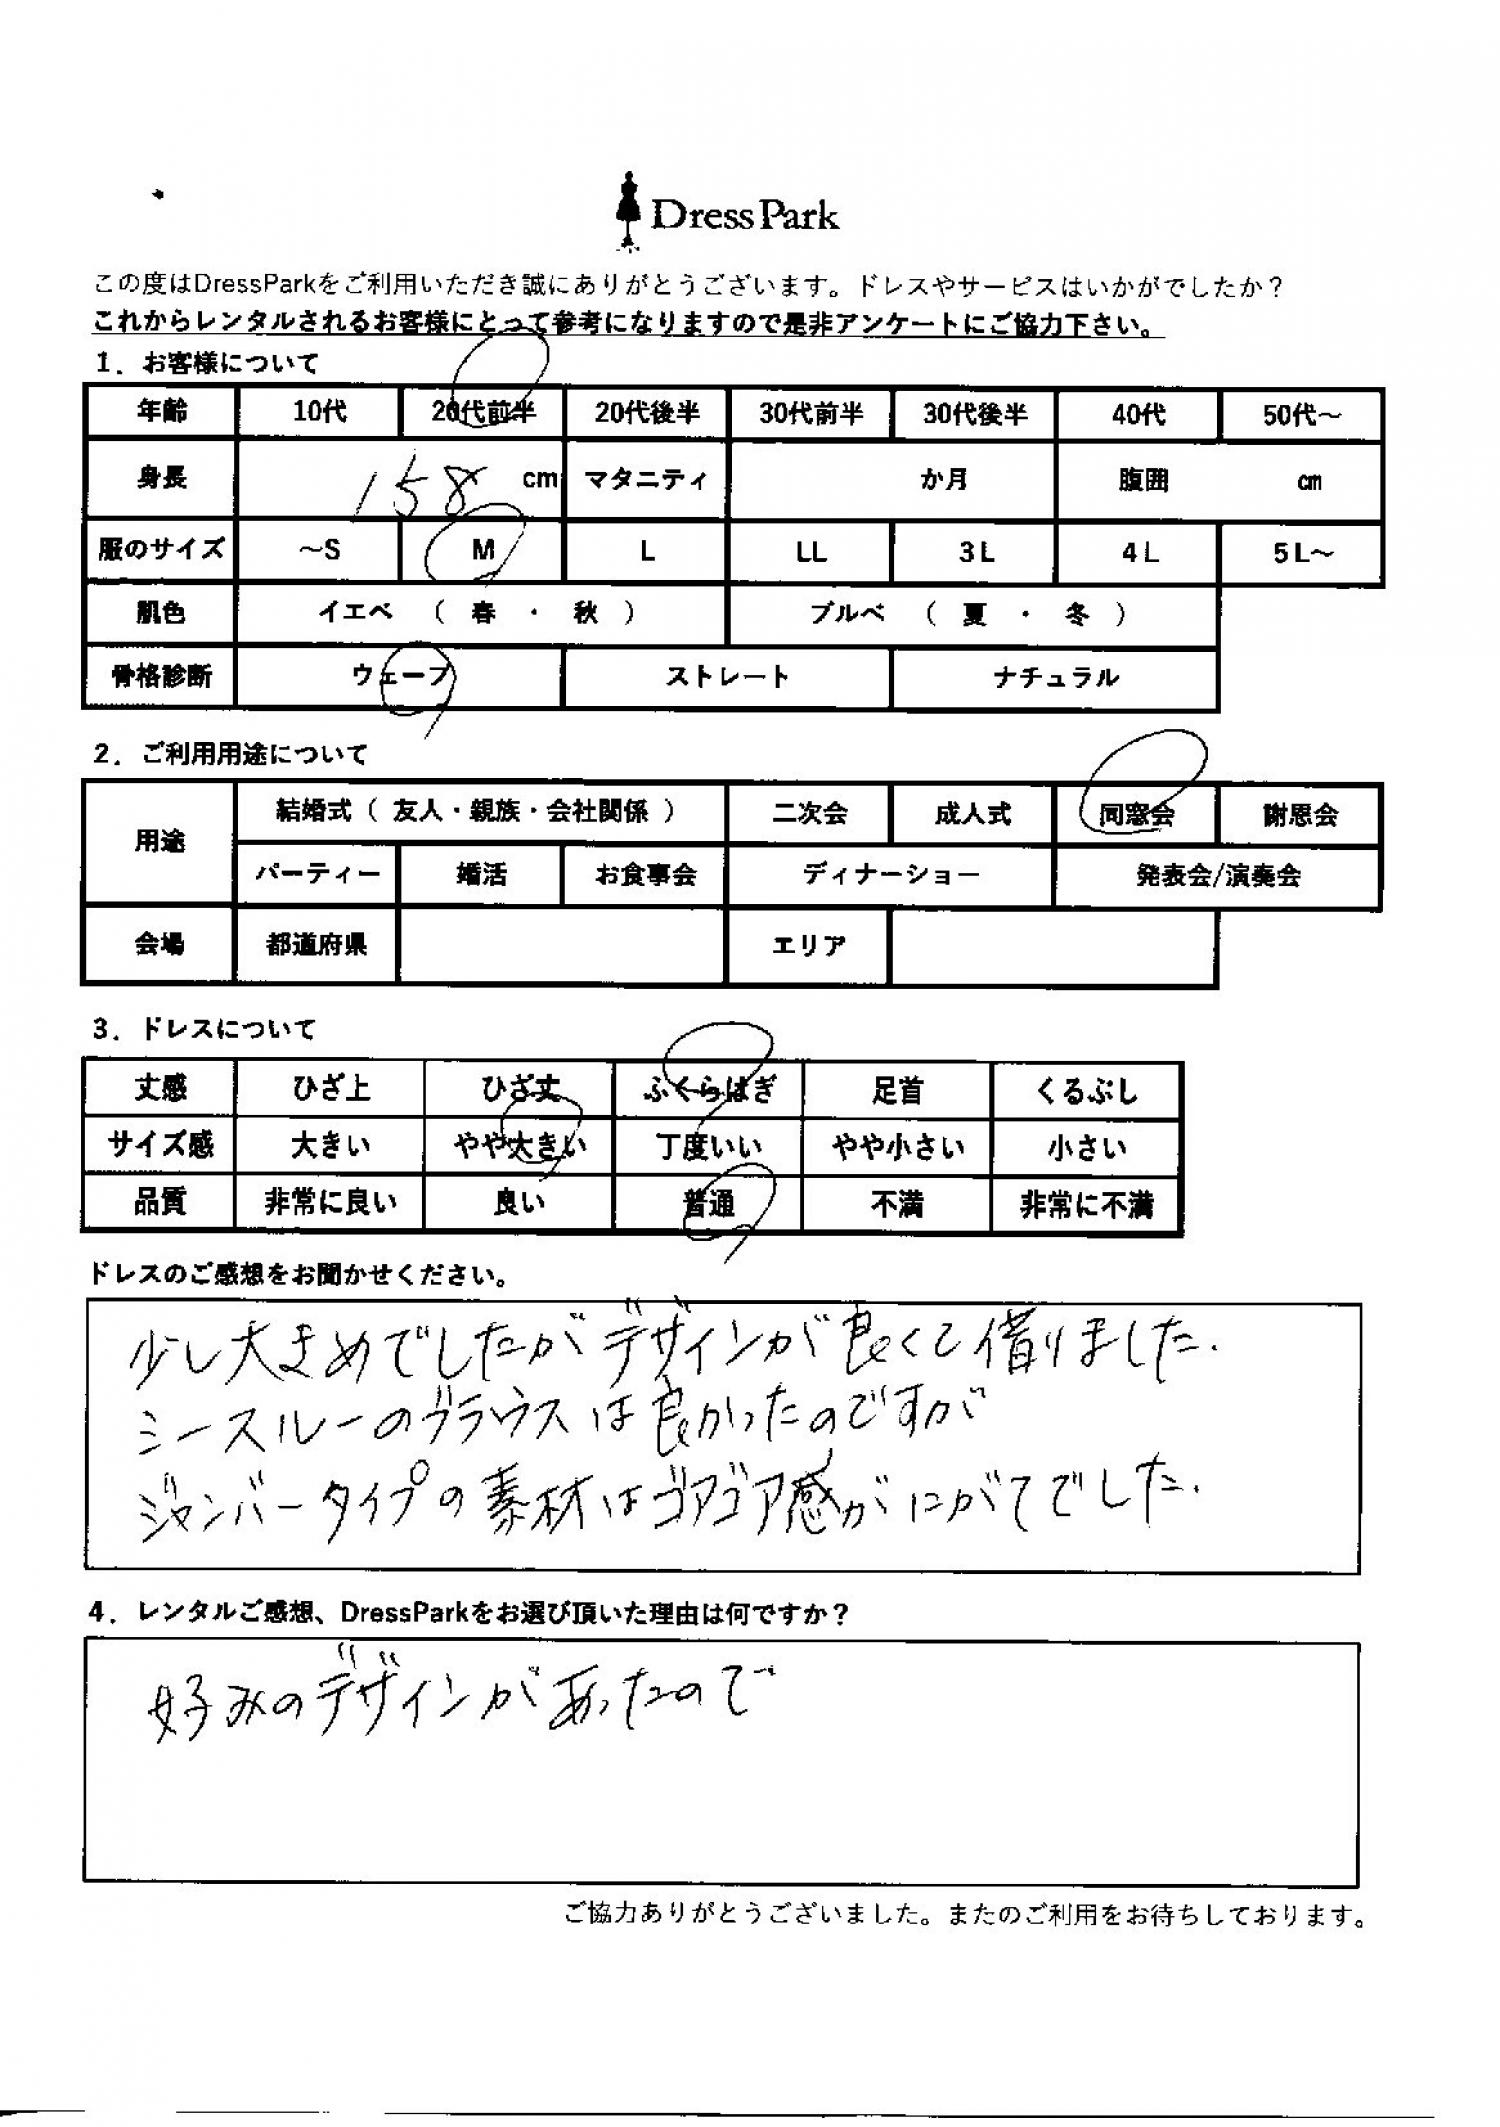 DressPark
この度はDressParkをご利用いただき誠にありがとうございます。ドレスやサービスはいかがでしたか？
これからレンタルされるお客様にとって参考になりますので是非アンケートにご協力下さい。
1．お客様について
年齢 10代 20代前半 20代後半 30代前半 30代後半 40代 50代～
身長 158 cm マタニティ か月 腹囲 cm
服のサイズ ～S M L LL 3L 4L 5L～
肌色 イエベ （ 春 ・ 秋 ） ブルベ （ 夏 ・ 冬 ）
骨格診断 ウェーブ ストレート ナチュラル
2．ご利用用途について
用途 結婚式（ 友人・親族・会社関係 ） 二次会 成人式 同窓会 謝恩会
パーティー 婚活 お食事会 ディナーショー 発表会/演奏会
会場 都道府県 エリア
3．ドレスについて
丈感 ひざ上 ひざ丈 ふくらはぎ 足首 くるぶし
サイズ感 大きい やや大きい 丁度いい やや小さい 小さい
品質 非常に良い 良い 普通 不満 非常に不満
ドレスのご感想をお聞かせください。
少し大きめでしたがデザインが良くて借りました.
シースルーのブラウスは良かったのですが
ジャンパータイプの素材はゴアゴア感がにがてでした.
4．レンタルご感想、DressParkをお選び頂いた理由は何ですか？
好みのデザインがあったので
ご協力ありがとうございました。またのご利用をお待ちしております。